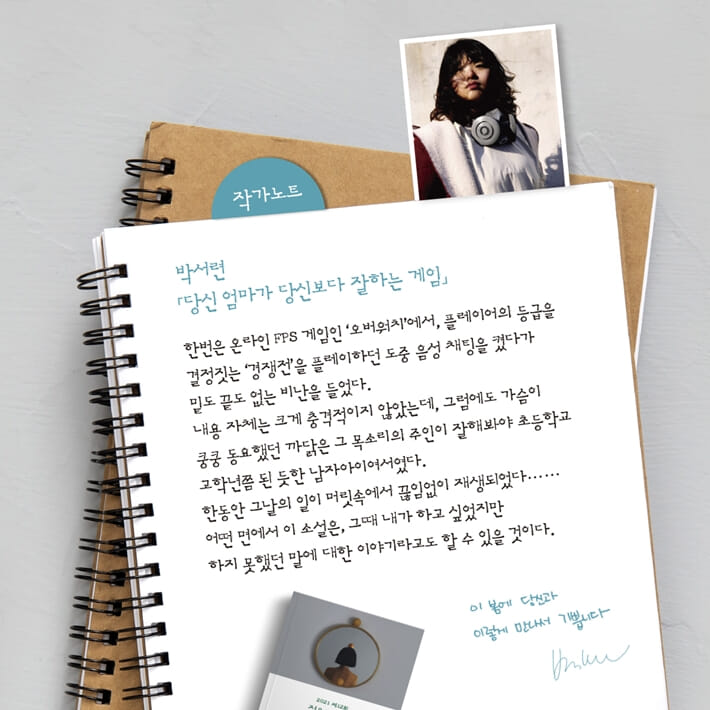 작가노트
박서련
「당신 엄마가 당신보다 잘하는 게임」
한번은 온라인 FPS 게임인 ‘오버워치’에서, 플레이어의 등급을
결정짓는 ‘경쟁전’을 플레이하던 도중 음성 채팅을 켰다가
밑도 끝도 없는 비난을 들었다.
내용 자체는 크게 충격적이지 않았는데, 그럼에도 가슴이
쿵쿵 동요했던 까닭은 그 목소리의 주인이 잘해봐야 초등학교
고학년쯤 된 듯한 남자아이여서였다.
한동안 그날의 일이 머릿속에서 끊임없이 재생되었다……
어떤 면에서 이 소설은, 그때 내가 하고 싶었지만
하지 못했던 말에 대한 이야기라고도 할 수 있을 것이다.
이 봄에 당신과
이렇게 만나서 기쁩니다
2021 제12회